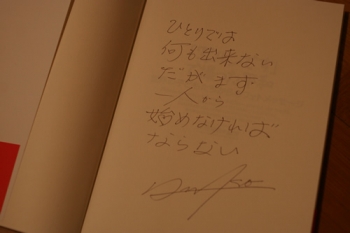 ひとりでは
何も出来ない
だがまず
一人から
始めなければ
ならない